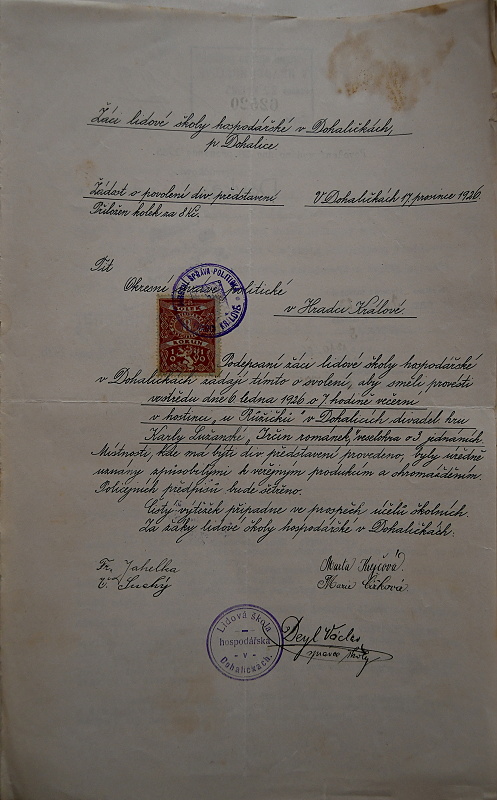 Žáci lidové školy hospodářské v Dohaličkách,
p Dohalice
Žádost o povolení div představení
V Dohaličkách 17 prosince 1926
Přiložen kolek za 8 Kč.
Tit
Okresní správě politické
v Hradci Králové
SPRÁVA POLITICKÁ
KOLEK
KORUN
Podepsaní žáci lidové školy hospodářské
v Dohaličkách žádají tímto o svolení, aby směli provésti
ve středu dne 6 ledna 1926 o 7 hodině večerní
v hostinci „u Růžičků" v Dohalicích divadel hru
Karly Lužanské „Irčin románek," veselohra o 3 jednáních
Místnosti, kde má býti div představení provedeno, byly úředně
uznány způsobilými k veřejným produkcím a shromážděním.
Policejních předpisů bude šetřeno.
Čistý výtěžek připadne ve prospěch účelů školních.
Za žáky lidové školy hospodářské v Dohaličkách:
Fr. Jahelka
Marta
V. Suchý
Marie
Lidová škola
hospodářská
- v -
Dohaličkách.
Deyl Václav
správce školy